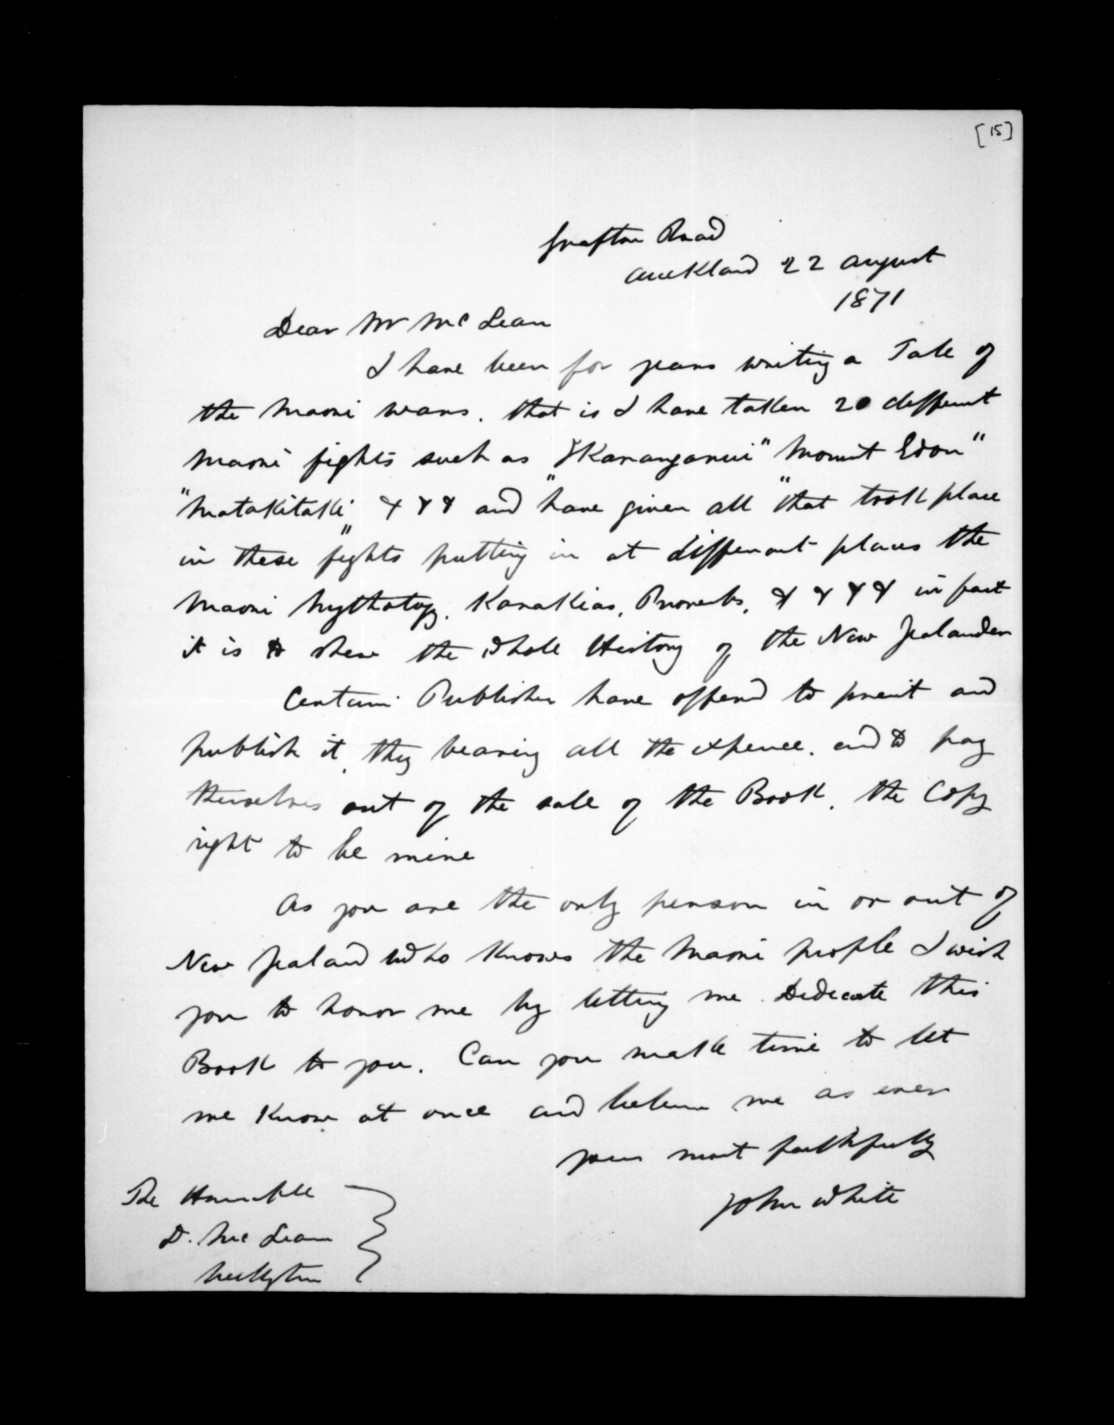 [15]
Grafton Road
Auckland 22 August
1871
Dear Mr McLean
I have been for years writing a Tale of
the Maori wars. that is I have taken 20 different
Maori fights such as "Mount Eden"
"Matakitaki" & & & and have given all that took place
in these fights putting in at different places the
Maori Mythology, Karakias, Proverbs, & & & & in fact
it is to shew the whole History of the New Zealander
Certain Publisher have offered to print and
publish it, they bearing all the expence. and to pay
themselves out of the sale of the Book, the Copy
right to be mine
As you are the only person in or out of
New Zealand who knows the Maori people I wish
you to honor me by letting me Dedicate this
Book to you. Can you make time to let
me know at once and believe me as ever
yours most faithfully
John White
The Honorable
D. McLean
Wellington